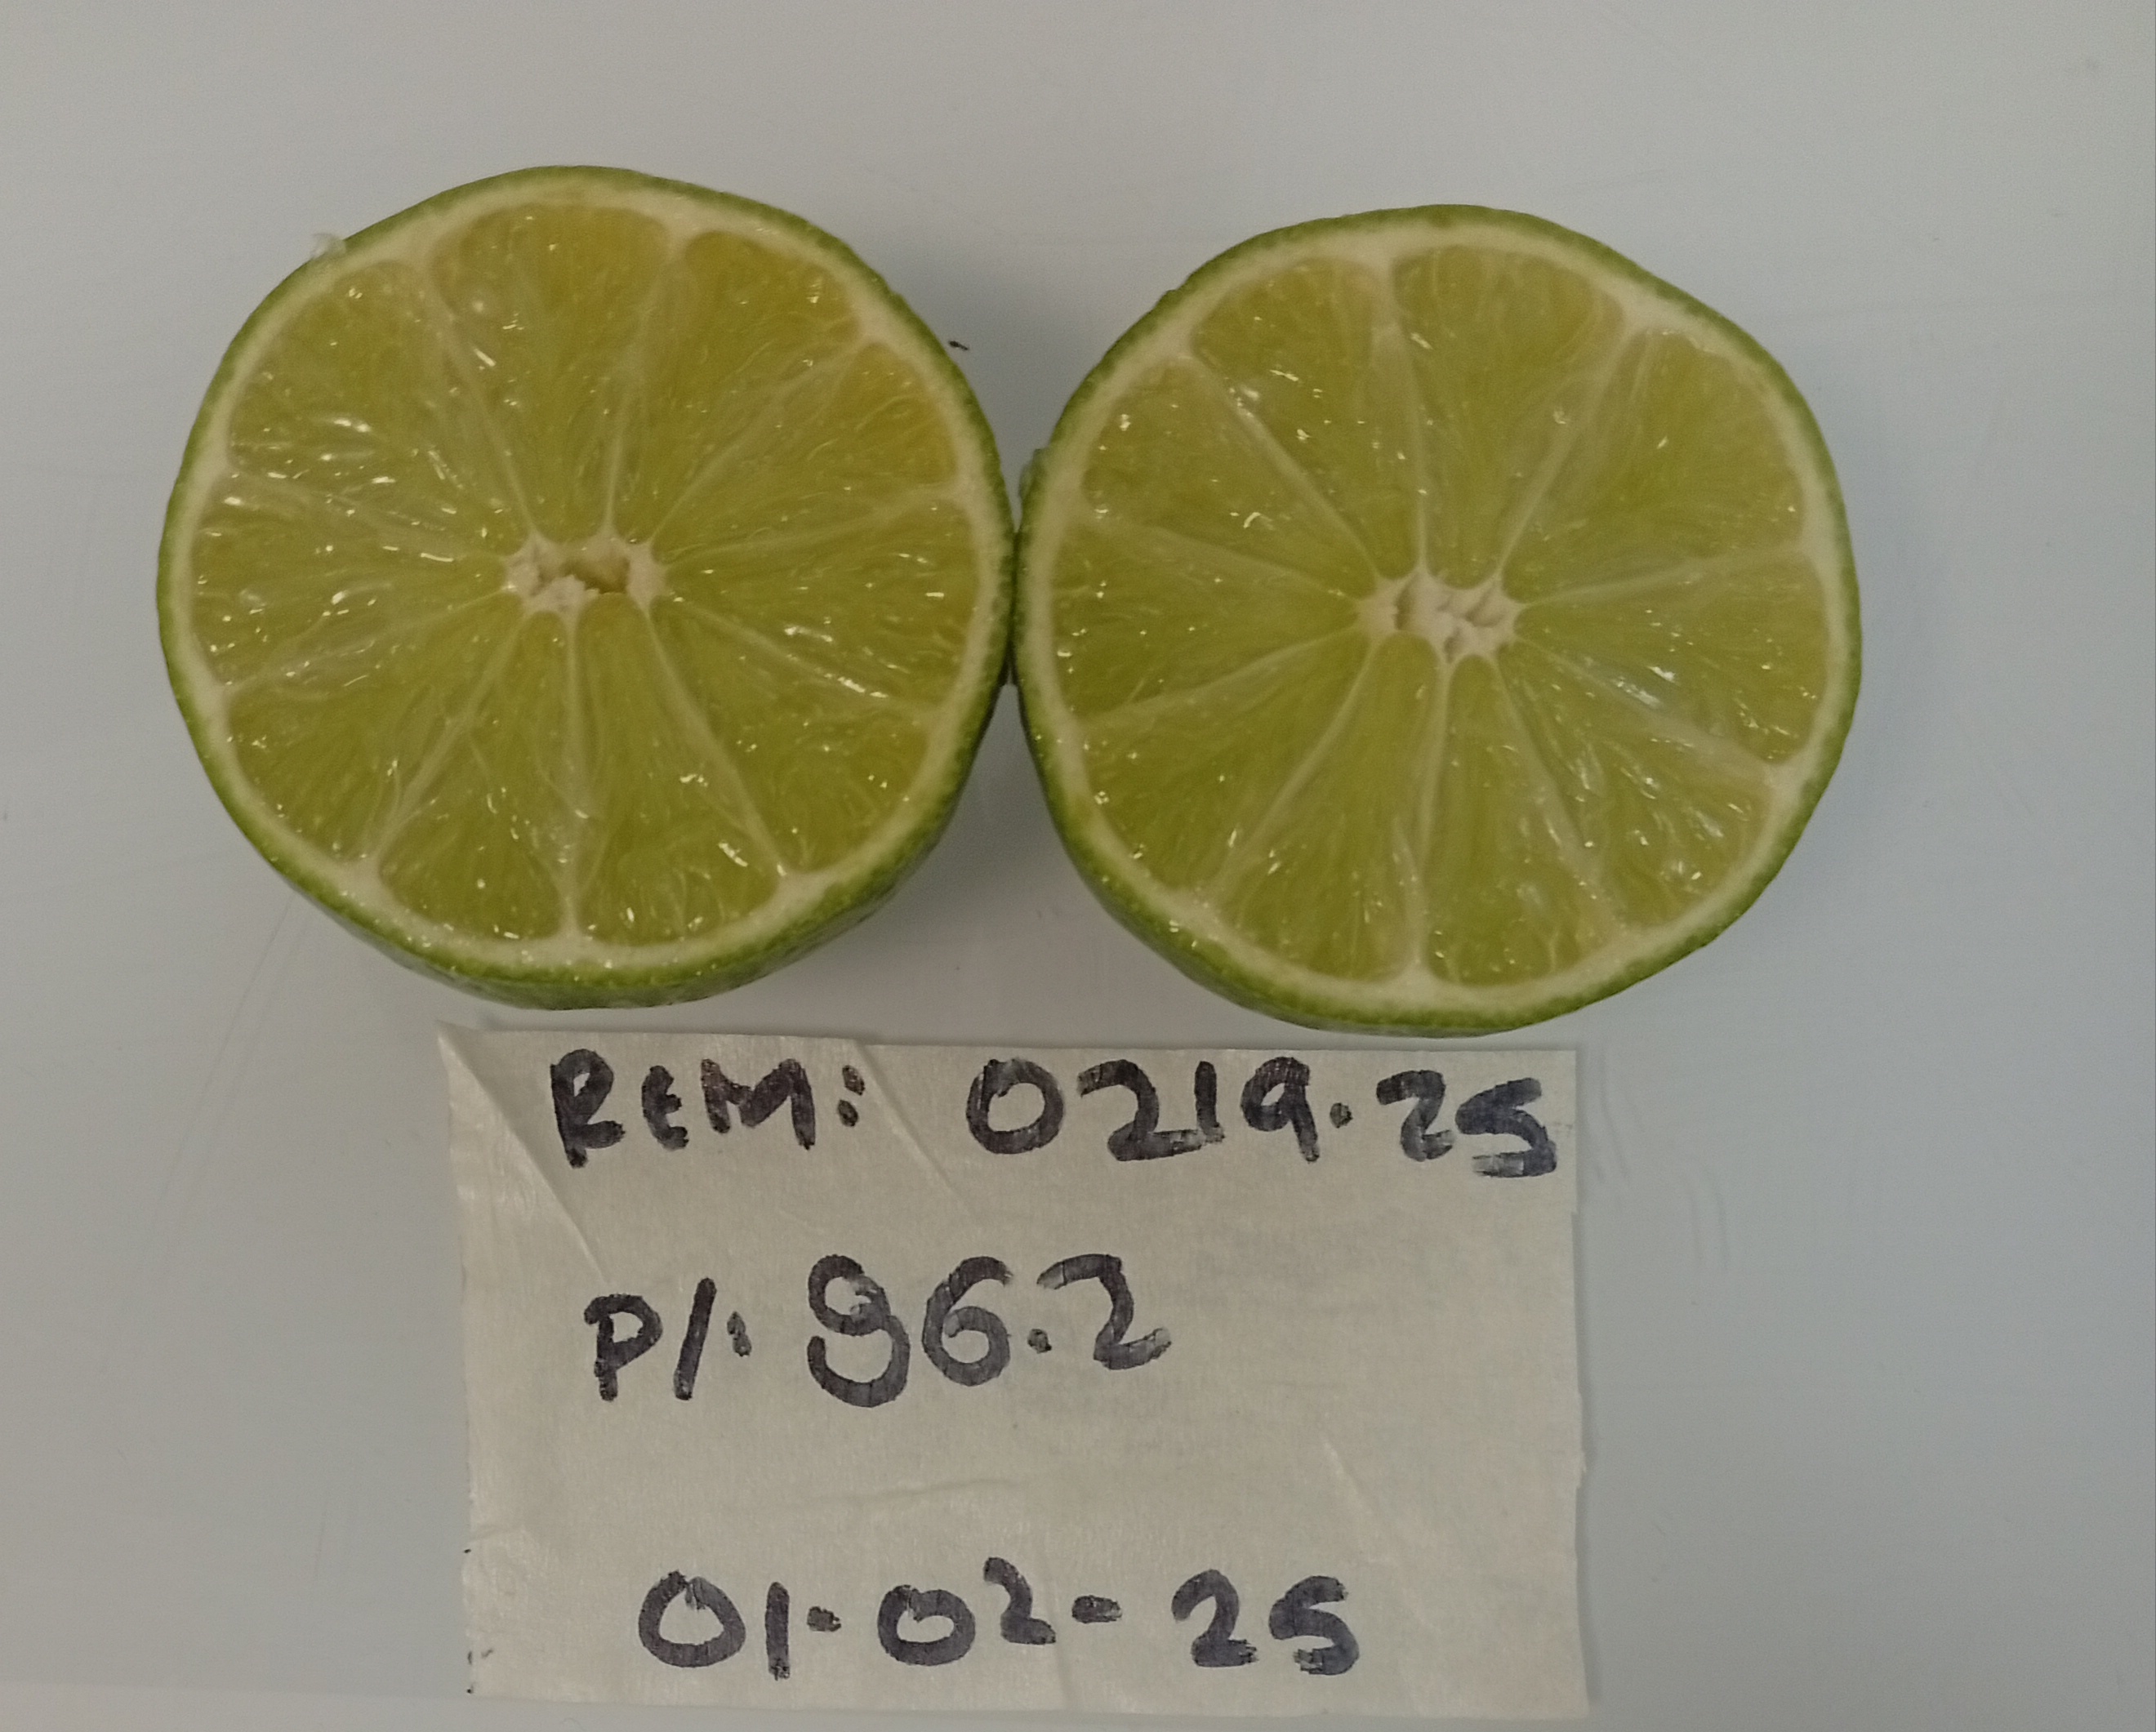 REM: 0219.25
P/: 96.2
01-02-25